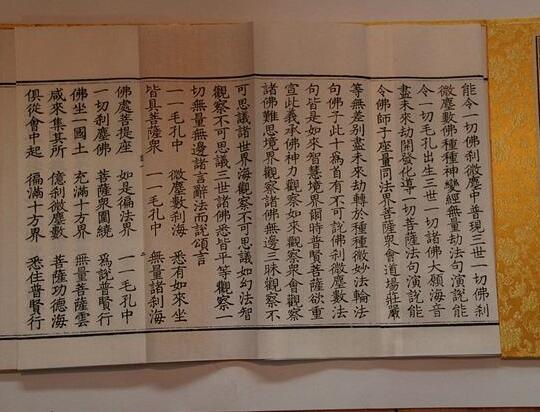 能令一切佛剎微塵中普現三世一切佛剎
微塵數佛種種神變經無量劫法句演說能
令一切毛孔出生三世一切諸佛大願海音
盡未來劫開發化導一切菩薩法句演說能
令佛師子座量同法界菩薩眾會道場莊嚴
等無差別盡未來劫轉於種種微妙法輪法
句佛子此十爲首有不可說佛剎微塵數法
句皆是如來智慧境界爾時普賢菩薩欲重
宣此義承佛神力觀察如來觀察眾會觀察
諸佛難思境界觀察諸佛無邊三昧觀察不
可思議諸世界海觀察不可思議如幻法智
觀察不可思議三世諸佛悉皆平等觀察一
切無量無邊諸言辭法而說頌言
一一毛孔中 微塵數剎海 悉有如來坐
皆具菩薩眾 一一毛孔中 無量諸剎海
佛處菩提座 如是徧法界 一一毛孔中
一切剎塵佛 菩薩眾圍繞 爲說普賢行
佛坐一國土 充滿十方界 無量菩薩雲
咸來集其所 億剎微塵數 菩薩功德海
俱從會中起 徧滿十方界 悉住普賢行